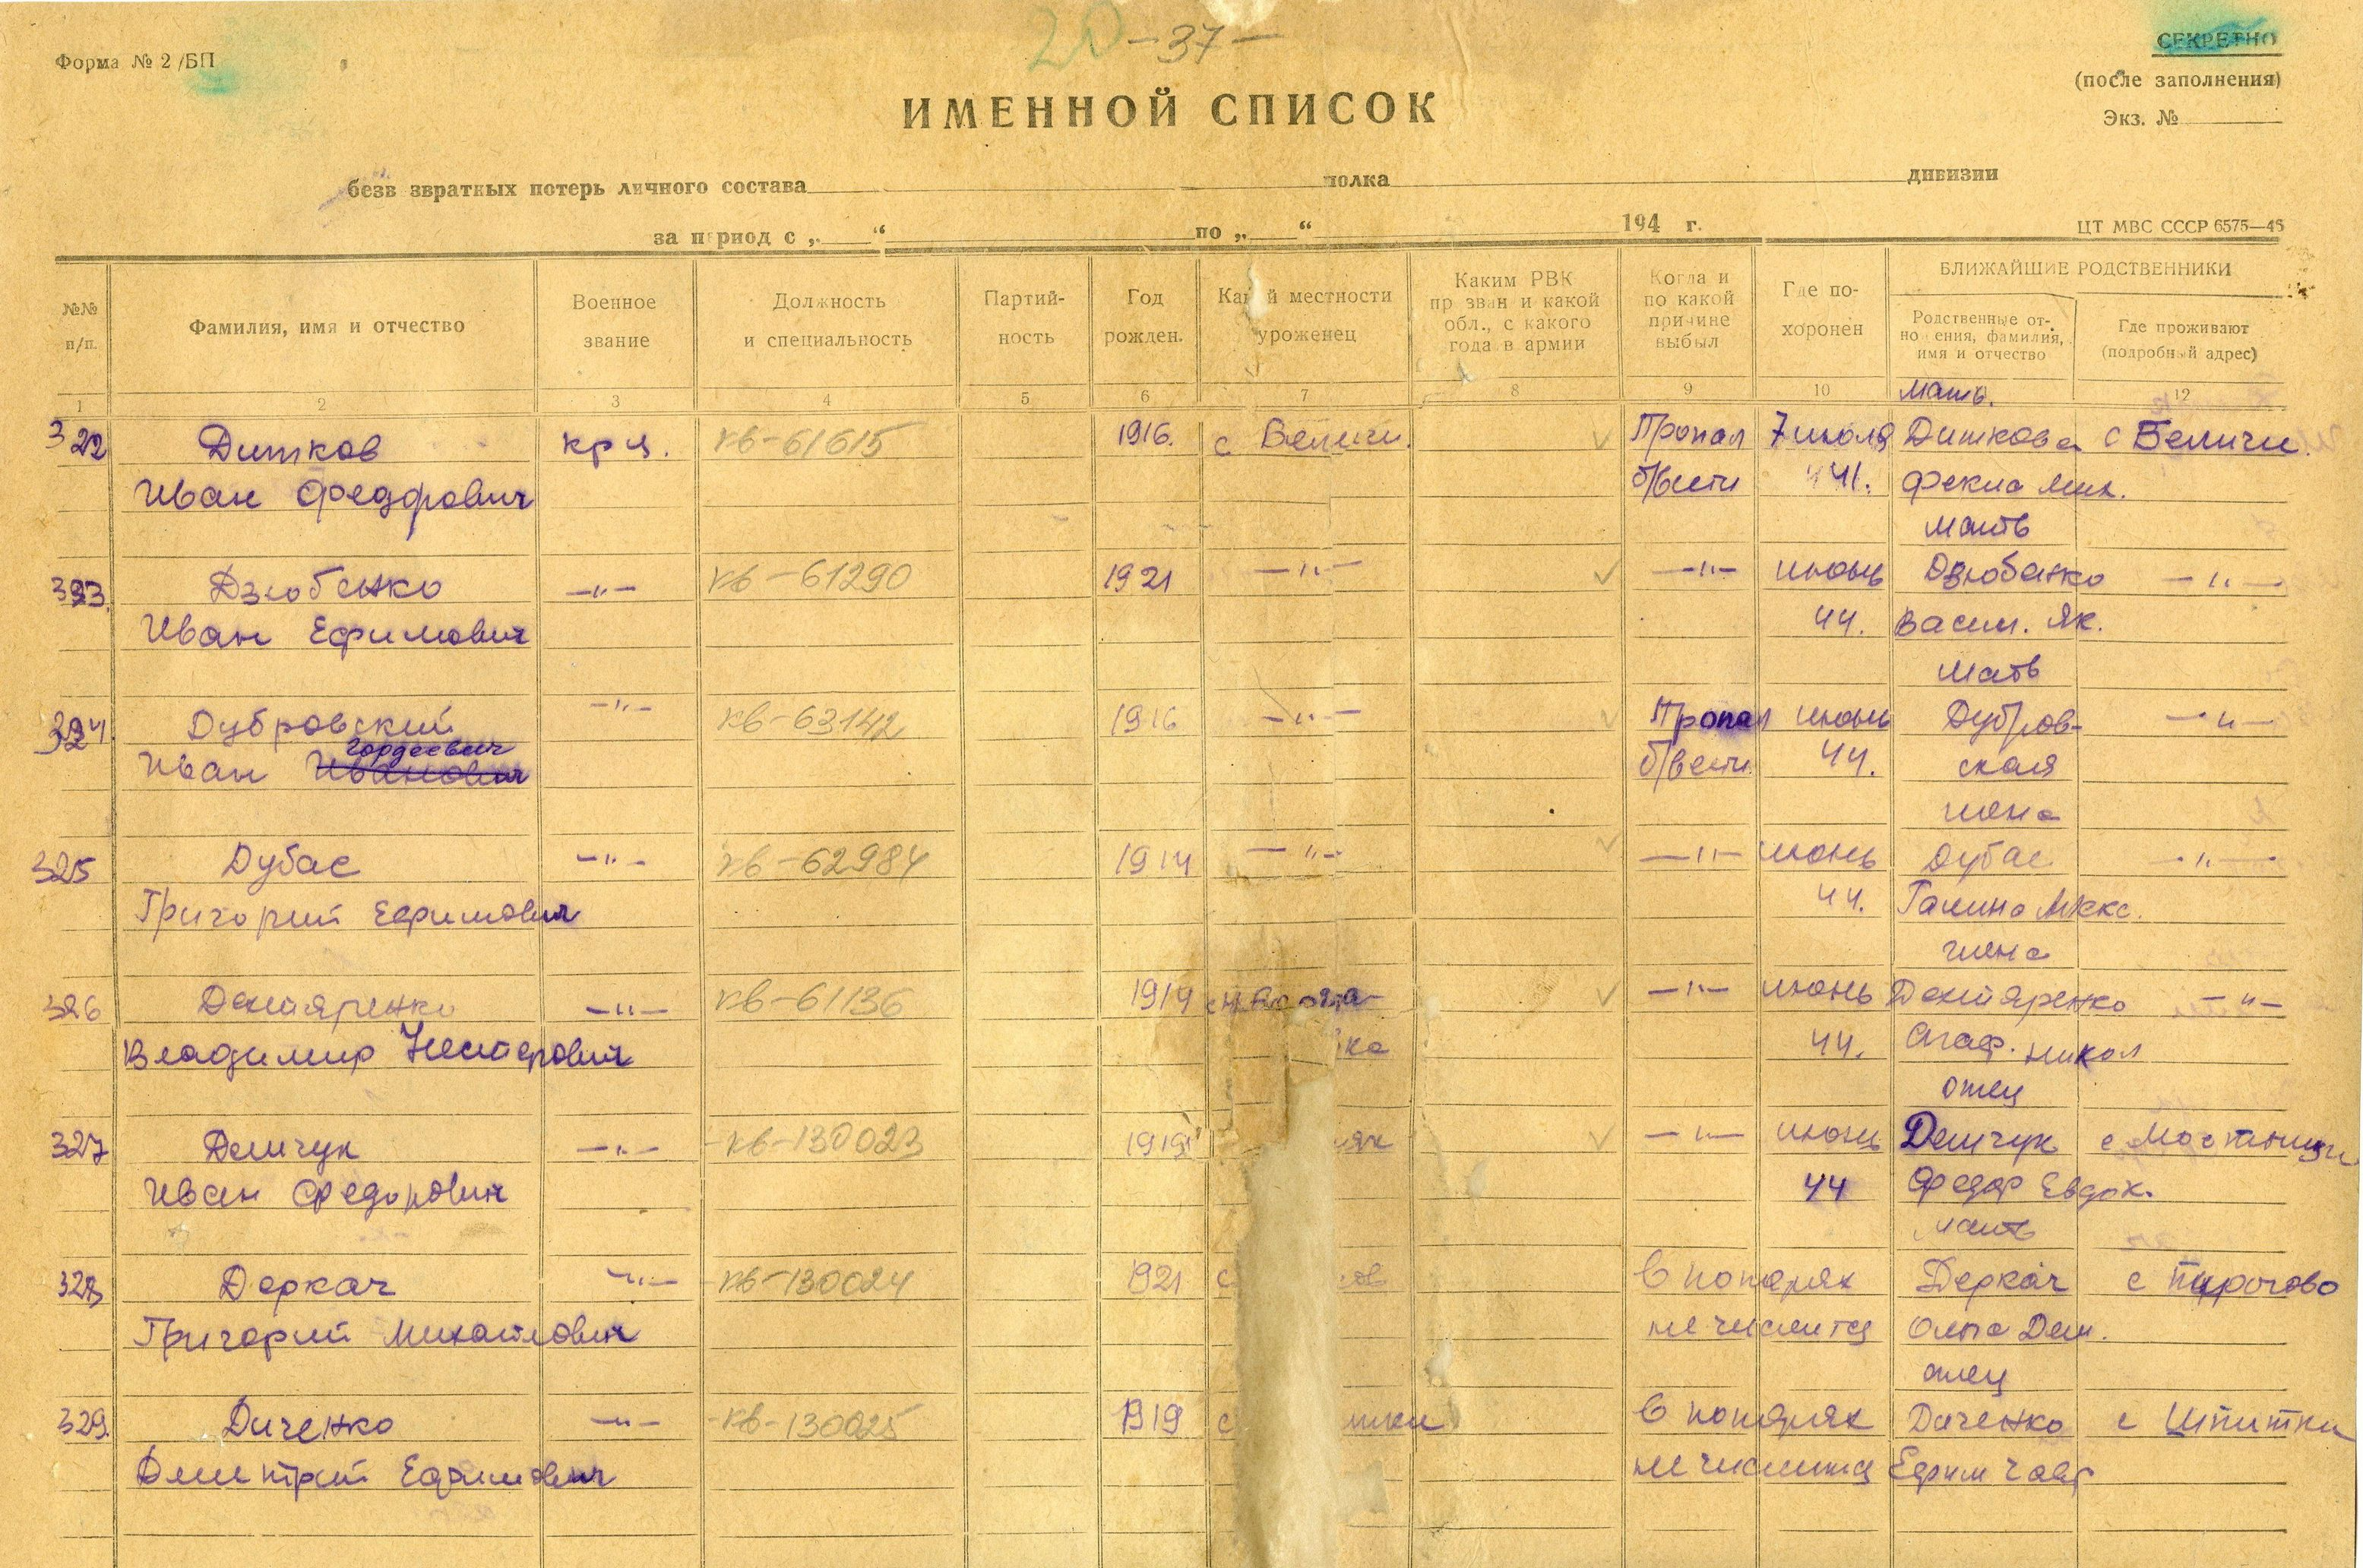 20 —37—
Форма № 2/БП
СЕКРЕТНО
(после заполнения)
Экз. №
ИМЕННОЙ СПИСОК
безв звратных потерь личного состава полка дивизии
за период с „ “ по „ “ 194 г.
ЦТ МВС СССР 6575—46
№№ п/п. Фамилия, имя и отчество Военное звание Должность и специальность Партий-ность Год рожден. Ка й местности уроженец Каким РВК пр зван и какой обл., с какого года в армии Когда и по какой причине выбыл Где по-хоронен БЛИЖАЙШИЕ РОДСТВЕННИКИ
Родственные от-но ения, фамилия, имя и отчество Где проживают (подробный адрес)
1 2 3 4 5 6 7 8 9 10 12
мать.
322 Дитков кр-ц. кв-61615 1916. с Беличи. Пропал 7 июля Диткова с Беличи.
Иван Федорович б/вести 41. Фекла Мих.
мать
323. Дзюбенко —"— кв-61290 1921 —"— —"— июнь Дзюбенко —"—
Иван Ефимович 44. Васил. Як.
мать
324 Дубровский —"— кв-63142 1916 —"— Пропал июнь Дубров- —"—
Гордеевич
Иван Иванович б/вести 44. ская
жена
325 Дубас —"— кв-62984 1914 —"— —"— июнь Дубас —"—
Григорий Ефимович 44. Галина Макс.
жена
326 Дегтяренко —"— кв-61136 1914 —"— июнь Дегтяренко —"—
Владимир Нестерович ка 44. Агаф. Никол
отец
327 Демчук —"— кв-130023 1919 —"— июнь Демчук с
Иван Федорович 44 Федор Евдок.
мать
328 Деркач —"— кв-130024 1921 с В потерях Деркач с
Григорий Михайлович не числится Ольга Дем.
отец
329. Диченко —"— кв-130025 1919 с В потерях Диченко с Шпитки
Дмитрий Ефимович не числится Ефим